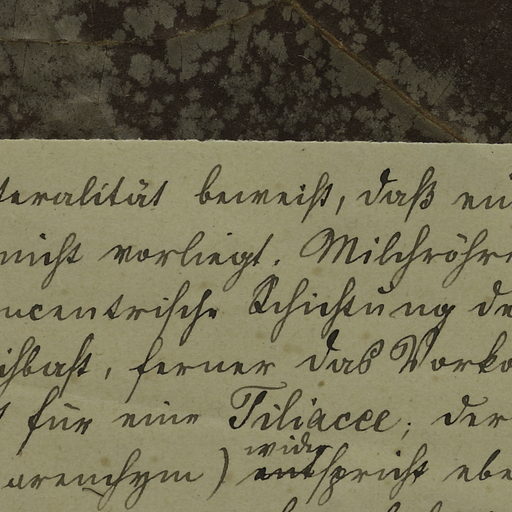 teralität beweist, daß ein
nicht vorliegt. Milchröhr
ncentrische Schichtung de
ichbast, ferner das Vorko
für eine Tiliacee; der
wider
arenchym) entspricht ebe